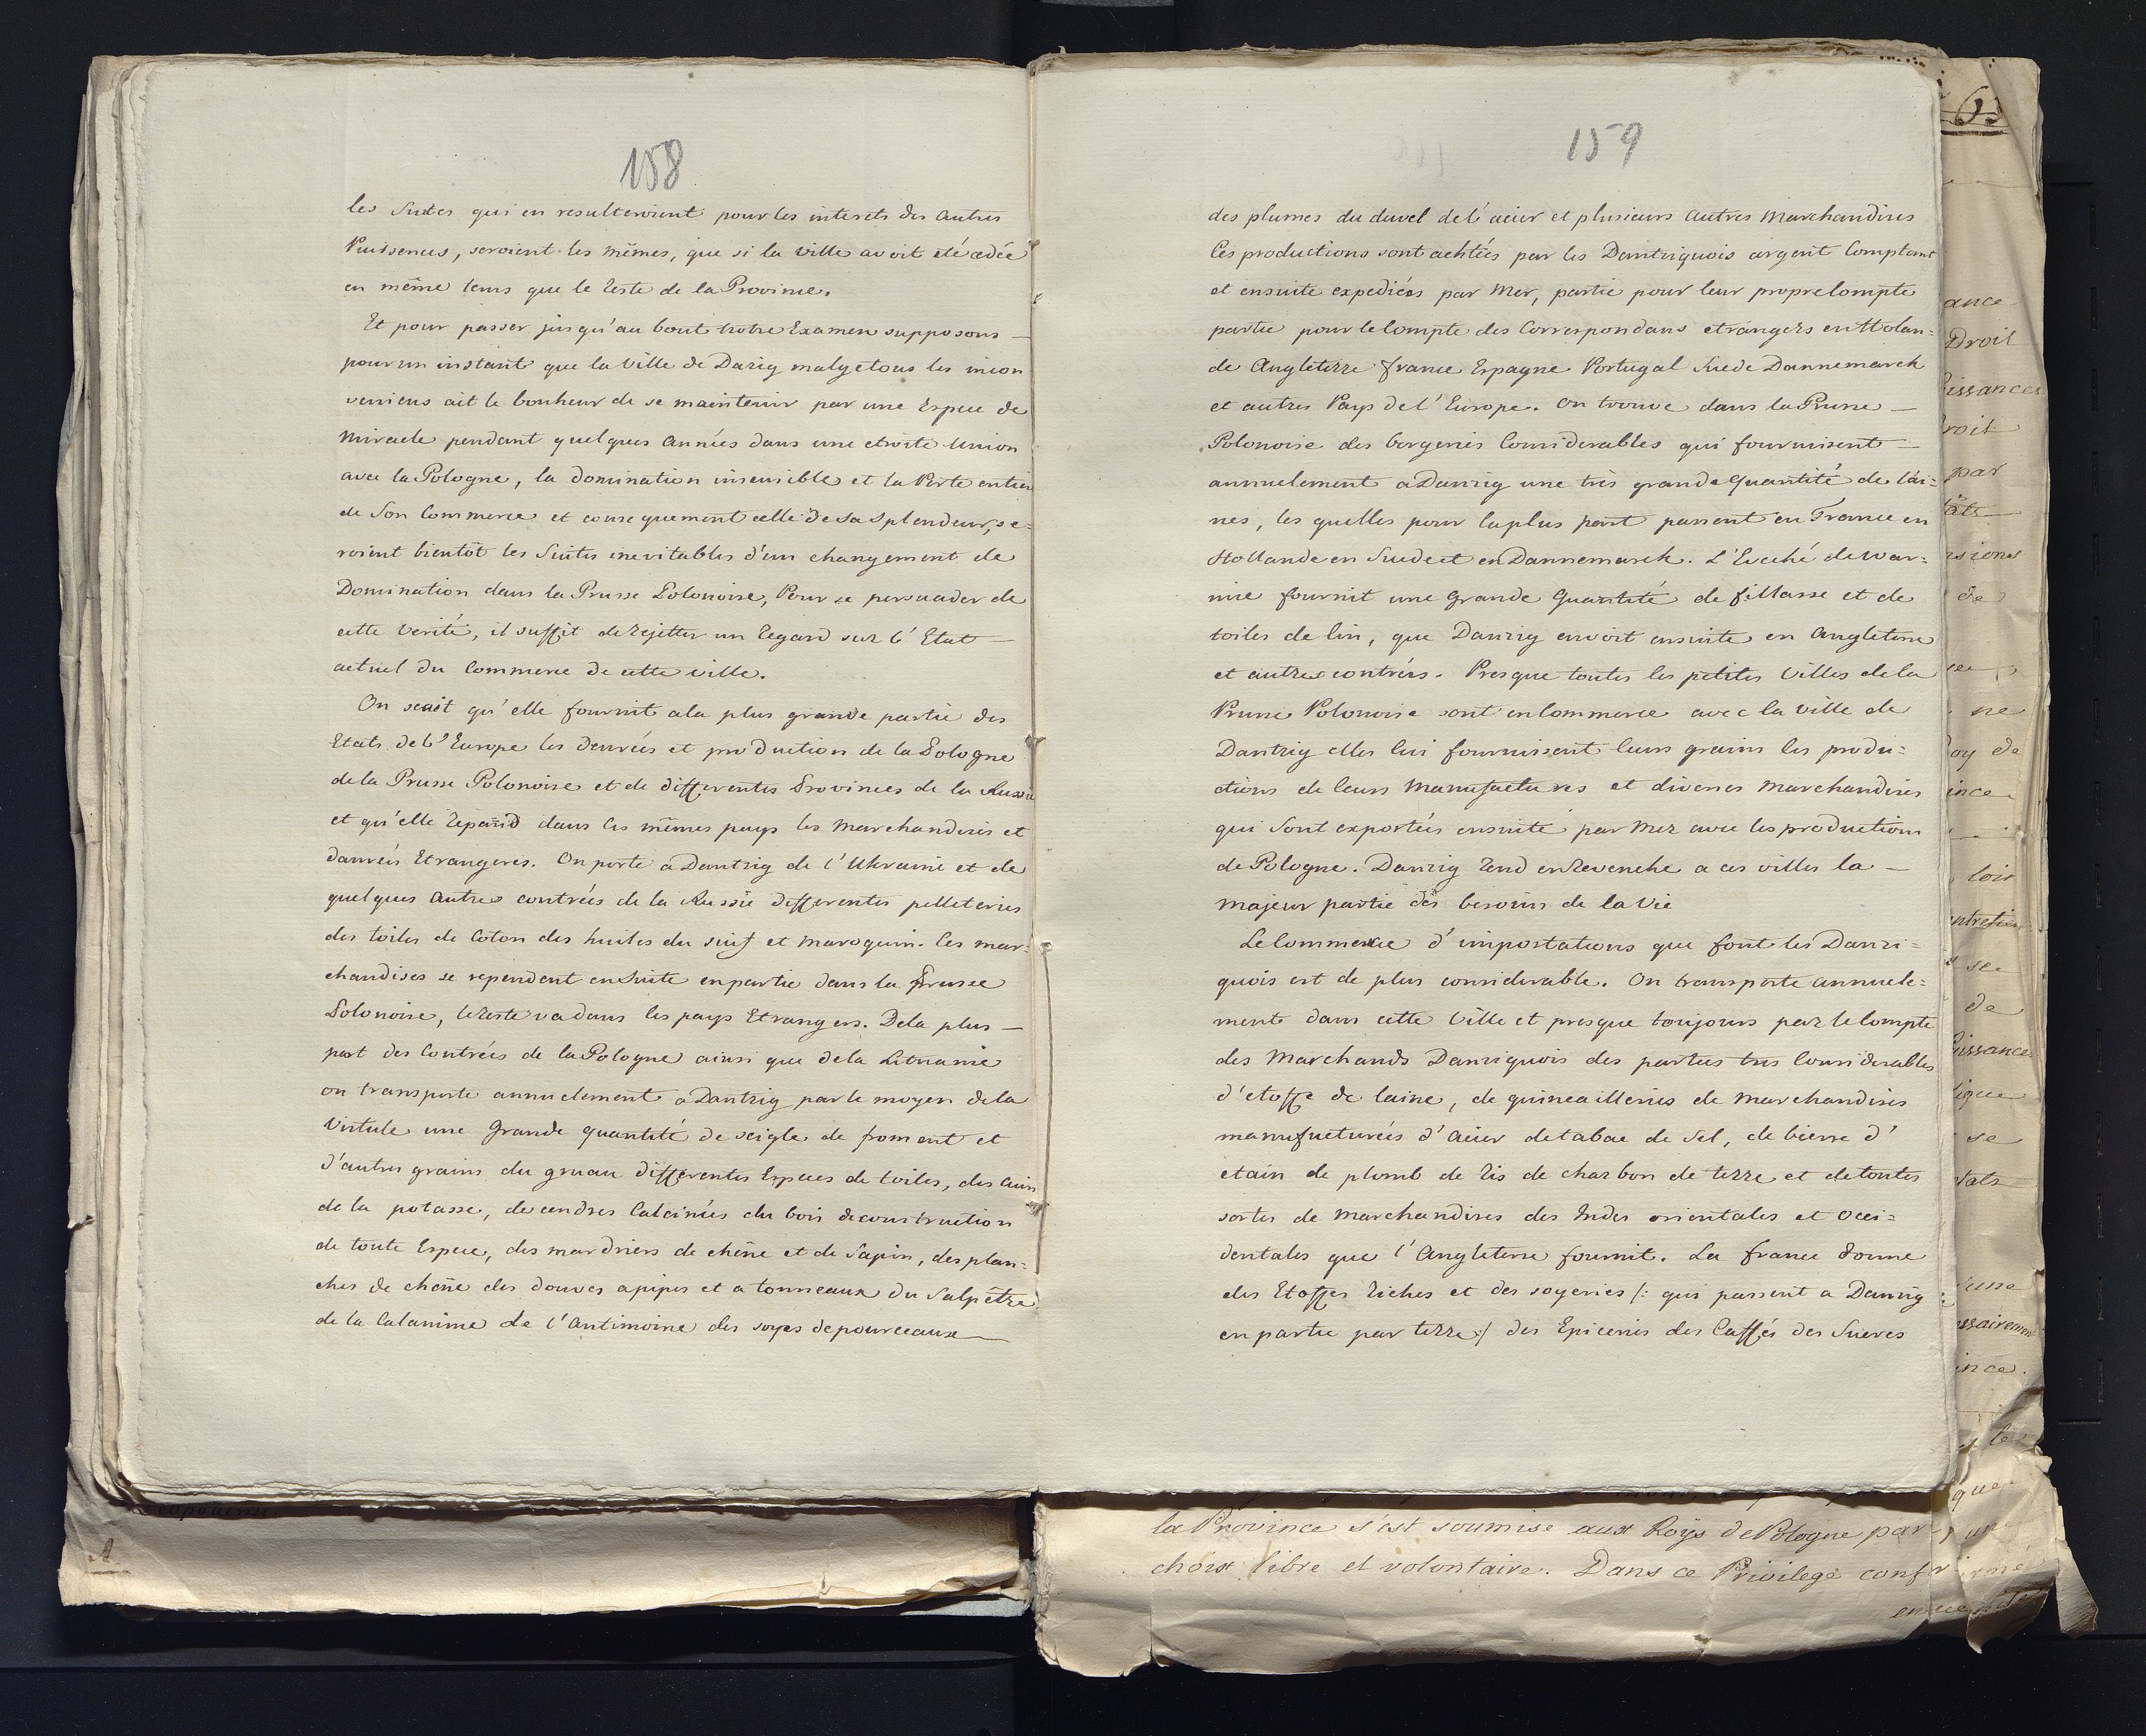 158
les Suites qui en resulteroient pour les interets des autres
Puissences, seroient les mêmes, que si la ville avoit eté cedée
en même tems que le reste de la Province.
Et pour passer jusqu'au bout notre Examen supposons —
pour un instant que la Ville de Dazig malgetous les incon
veniens ait le bonheur de se maintenir par une Espece de
Miracle pendant quelques Années dans une etroite Union
avec la Pologne, la domination insensible et la Perte entiere
de Son Commerce et consequement celle de sa Splendeur, se-
roient bientôt les Suites inevitables d'un changement de
Domination dans la Prusse Polonoise, Pour se persuader de
cette Verité, il suffit de rejetter un regard sur l'Etat —
actuel du Commerce de cette ville.
On scait qu'elle fournit a la plus grande partie des
Etats de l'Europe les denrées et production de la Pologne
de la Prusse Polonoise et de differentes Provinces de la Russie
et qu'elle repand dans les mêmes pays les Marchandises et
danrées Etrangeres. On porte a Dantzig de l'Ukraine et de
quelques Autres contrées de la Russie differentes pelleteries
des toiles de Coton des huiles du suif et maroquin. Ces mar-
chandises se rependent ensuite en partie dans la Prusse
Polonoise, le reste va dans les pays Etrangers. De la plus —
part des Contrées de la Pologne ainsi que de la Lituanie
on transporte annuelement a Dantzig par le moyen de la
Vistule une Grande quantité de seigle de froment et
d'autres grains du gruau differentes Especes de toiles, des cuirs
de la potasse, de cendres Calcinées du bois de construction
de toute Espece, des mardriers de chêne et de Sapin, des plan-
ches de chêne des douves a pipes et a tonneaux du Salpêtre
de la Calamine de l'Antimoine des soyes de pourceaux
159
des plumes du duvel de l'acier et plusieurs Autres Marchandises
Ces productions sont achtées par les Dantziquois argent Comptant
et ensuite expediées par Mer, partie pour leur propre Compte
partie pour le Compte des Correspondans etrangers en Holan-
de Angleterre france Espagne Portugal Suede Dannemarck
et autres Pays de l'Europe. On trouve dans la Prusse —
Polonoise des bergeries Considerables qui fournisent —
annuelement a Danzig une très grande Quantité de lai-
nes, les quelles pour la plus part passent en France en
Hollande en Suede et en Dannemarck. L'Eveché de War-
mie fournit une Grande Quantité de fillasse et de
toiles de lin, que Danzig envoit ensuite en Angleterre
et autres contrées. Presque toutes les petites Villes de la
Prusse Polonoise sont en Commerce avec la Ville de
Dantzig elles lui fournissent leurs grains les produ-
ctions de leurs Manufactures et diverses Marchandises
qui Sont exportées ensuite par Mer avec les productions
de Pologne. Danzig rend en Revenche a ces villes la —
majeur partie des besoins de la Vie
Le Commerce d'importations que font les Danzi-
quois est de plus considerable. On transporte annuele-
ment dans cette Ville et presque toujours par le Compte
des Marchands Danziquois des parties tres Considerables
d'etoffe de laine, de quincailleries de Marchandises
manufacturées d'Acier de tabac de Sel, de bierre d'
etain de plomb de ris de charbon de terre et de toutes
sortes de Marchandises des Indes orientales et Occi-
dentales que l'Angleterre fournit. La france donne
des Etoffes riches et des soyeries /: qui passent a Danzig
en partie par terre :/ des Epiceries des Caffés des Sucres
la Province s'est soumise aux Roys de Pologne par
choix libre et volontaire. Dans ce Privilege
ance
Droit
issances
roit
par
sions
de
ne
oy de
ince
loix
se
de
issance
se
tats
ince.
que